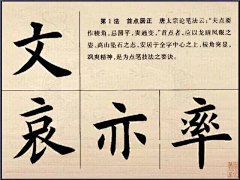 第1法 首点居正 唐太宗论笔法云：“夫点要
作棱角，忌圆平，贵通变。”首点者，应以龙睛凤眼之
姿，高山坠石之态，安居于全字中心之上，棱角突显，
飒爽精神，是为点笔技法之要诀。
文
哀 亦 率